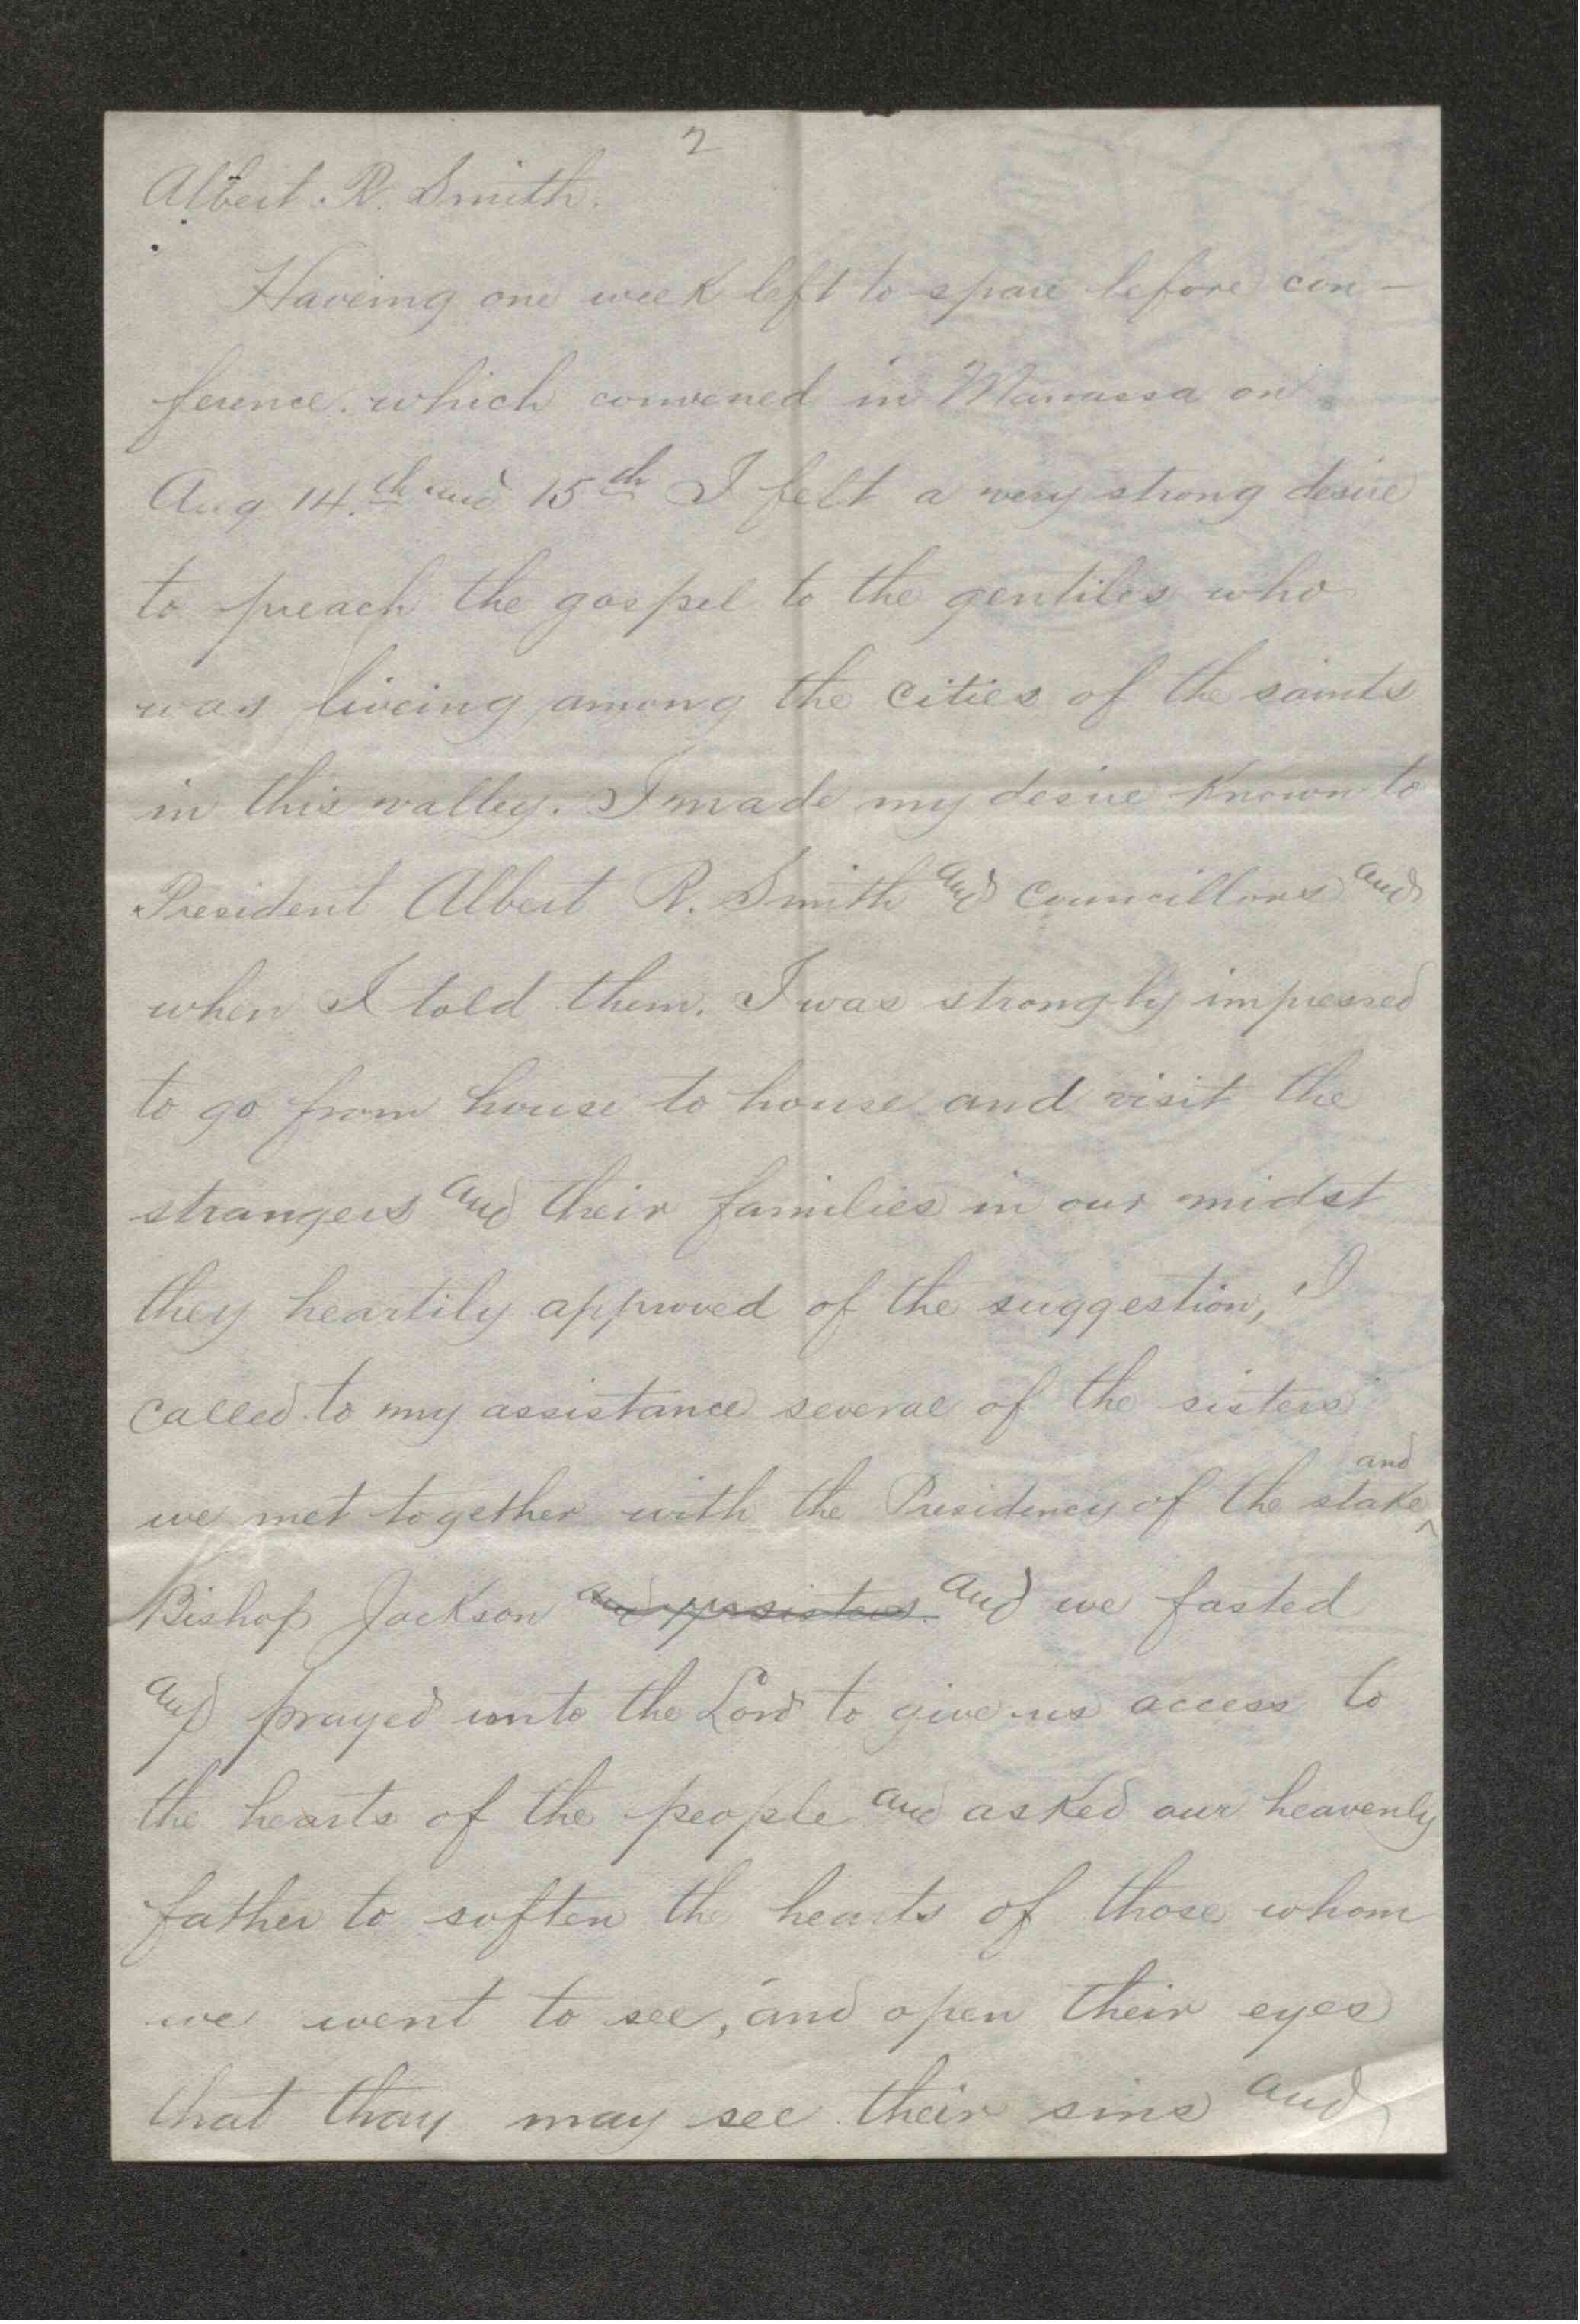 2
Albert. R. Smith.
Haveing one week left to spare before con-
ference. which convened in Manassa on
Aug 14.th and 15th I felt a very strong desire
to preach the gospel to the gentiles who
was liveing among the cities of the saints
in this valley. I made my desire known to
President Albert R. Smith and Councillors and
when I told them. I was strongly impressed
to go from house to house and visit the
strangers and their families in our midst
they heartily approved of the suggestion, I
called to my assistance several of the sisters
and
we met together with the Presidency of the stake ^
Bishop Jackson and sisters. and we fasted
and prayed unto the Lord to give us access to
the hearts of the people and asked our heavenly
father to soften the hearts of those whom
we went to see, and open their eyes
that thay may see their sins and